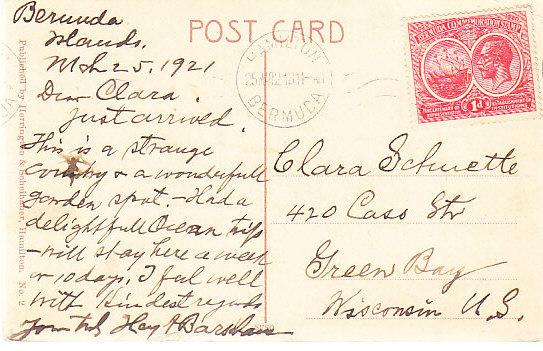 POST CARD
Bermuda
Islands.
Mch 25, 1921
Dear Clara.
Just arrived.
This is a strange
Country & a wonderfull
garden spot. - Had a
delightfull Ocean trip
- will stay here a week
or 10 days. I feel well
with kindest regards
HAMILTON
BERMUDA
BERMUDA COMMEMORATION STAMP
1d
TERCENTENARY OF ESTABLISHMENT OF
REPRESENTATIVE INSTITUTIONS
Clara Schuette
420 Cass Str
Green Bay
Wisconsin U.S.
Published by Harrington & Scheibner, Hamilton. No. 2